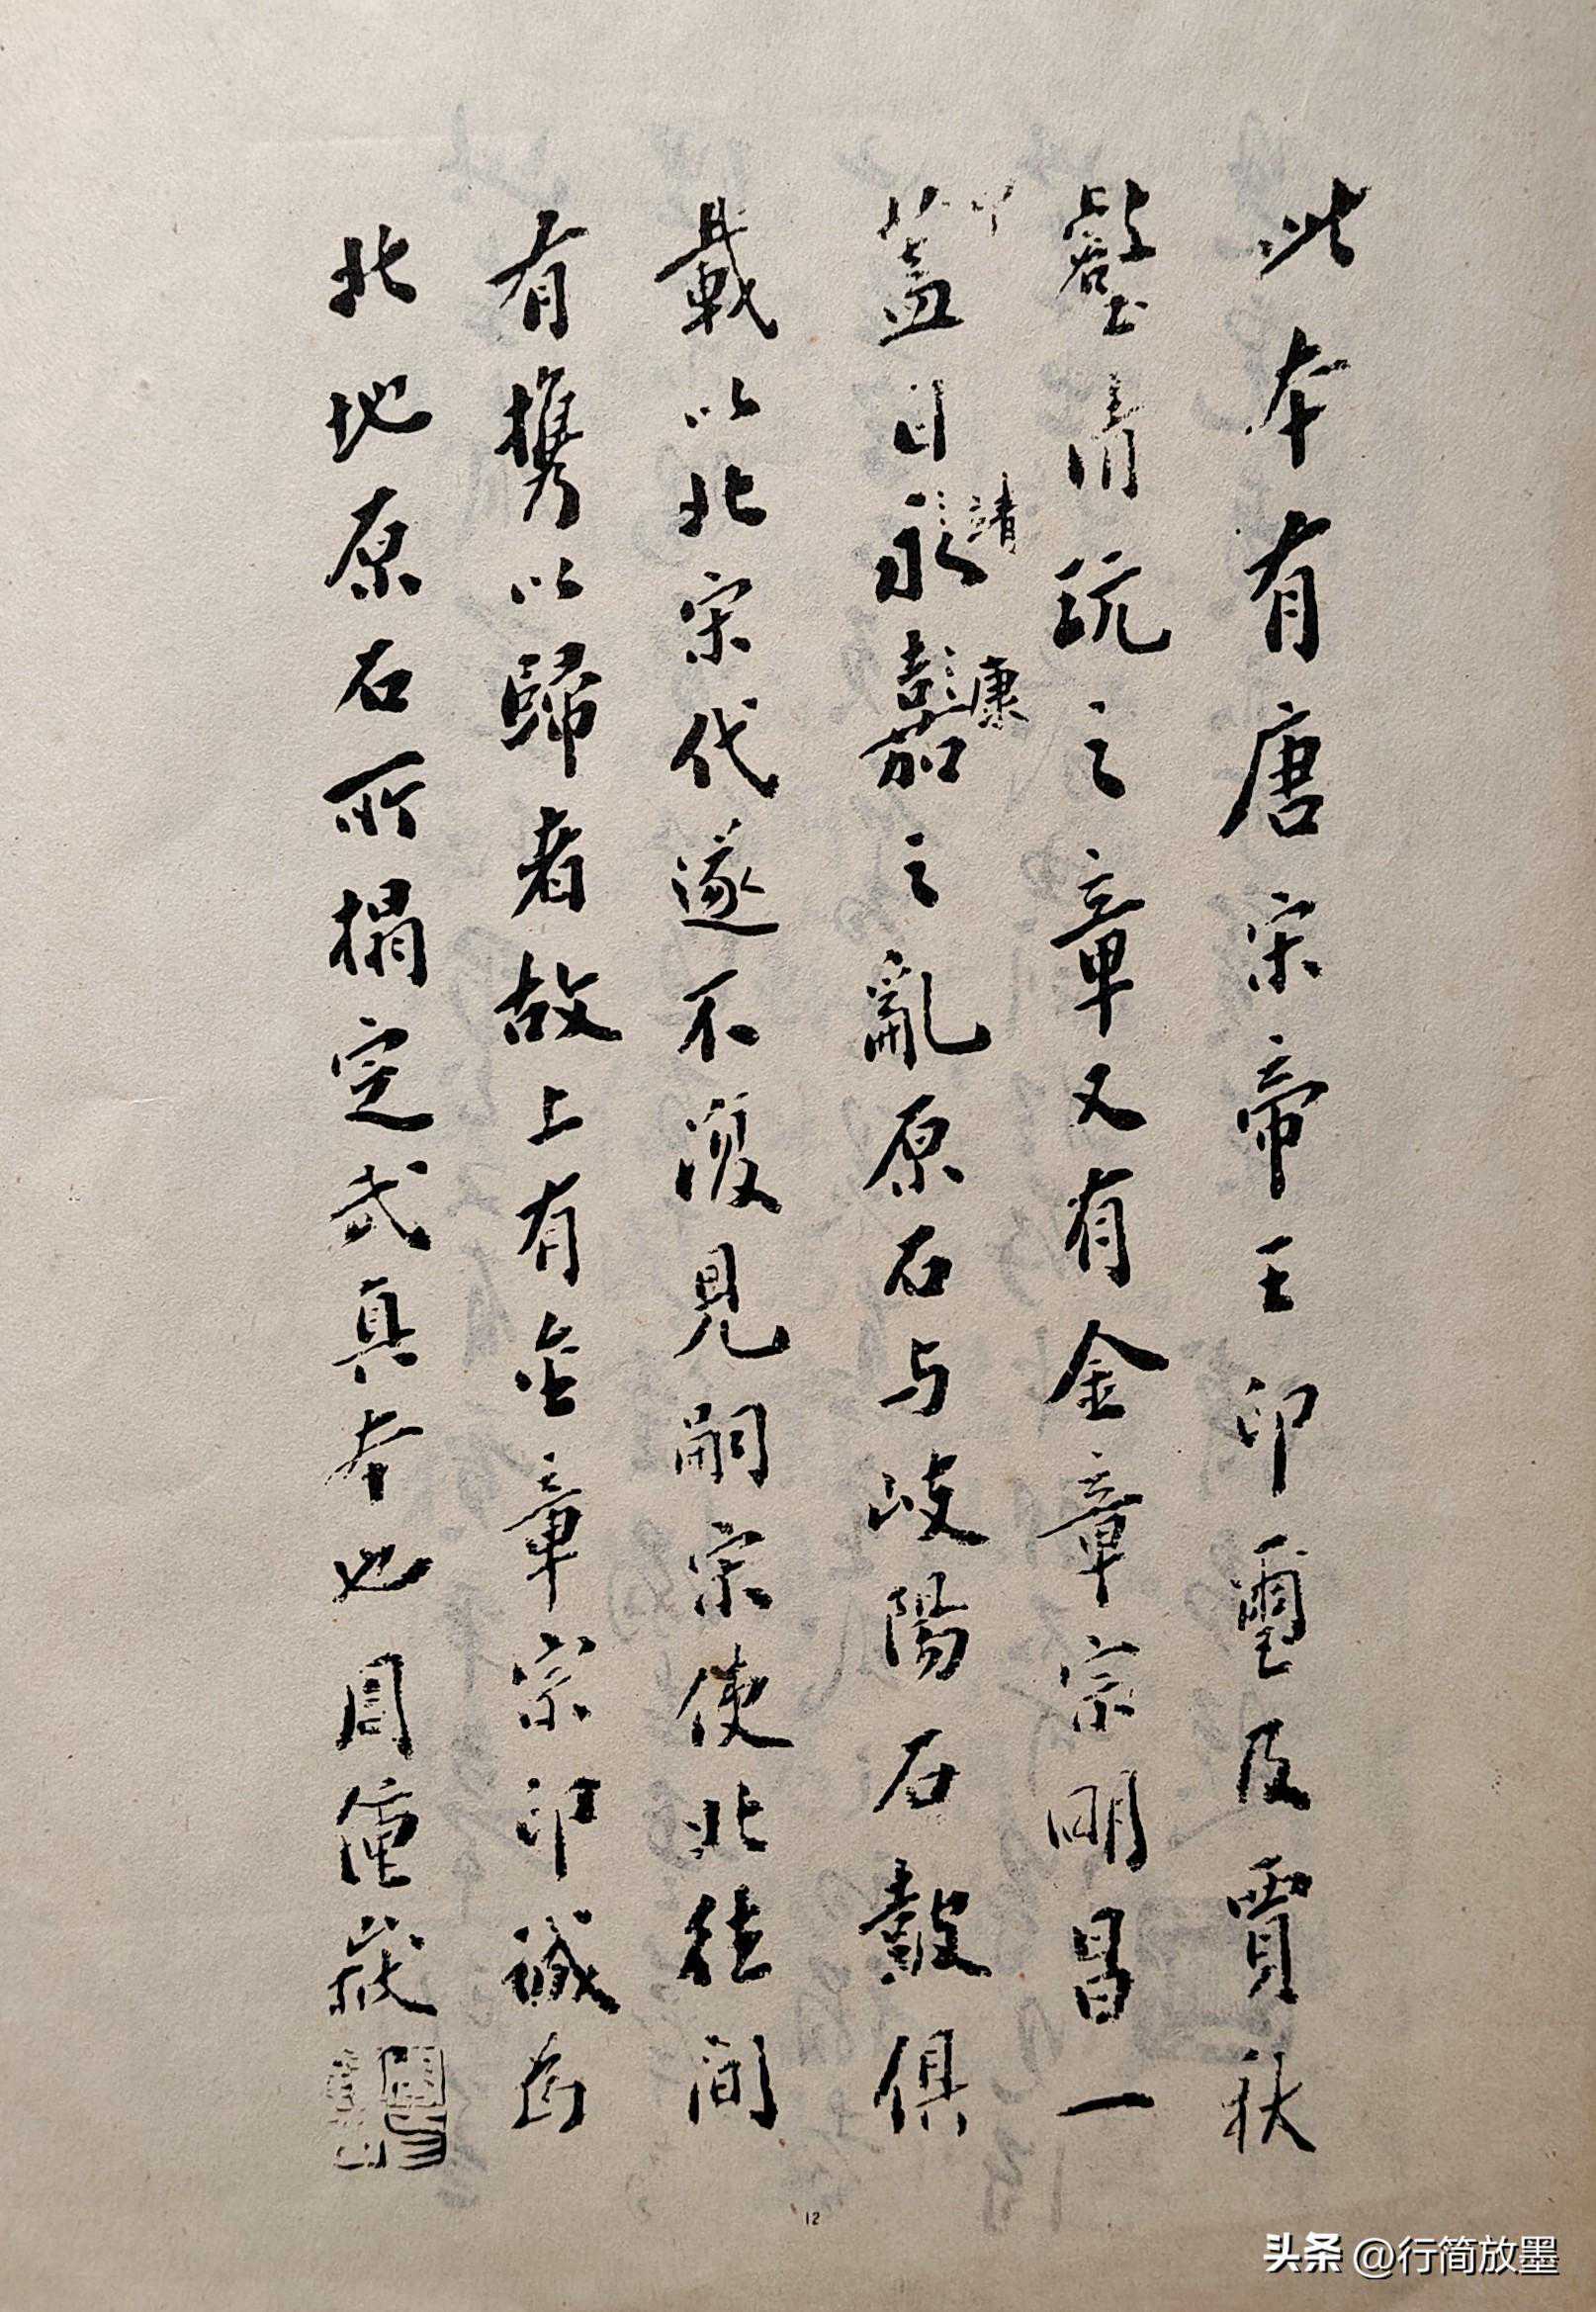 此本有唐宋帝王印璽及賈秋
壑清玩之章又有金章宗明昌一
蓋自永嘉之亂原石与岐陽石鼓俱
靖康
載以北宋代遂不復見嗣宗使北往間
有携以歸者故上有金章宗印識為
北地原石所搨定武真本也
12
头条 @行简放墨